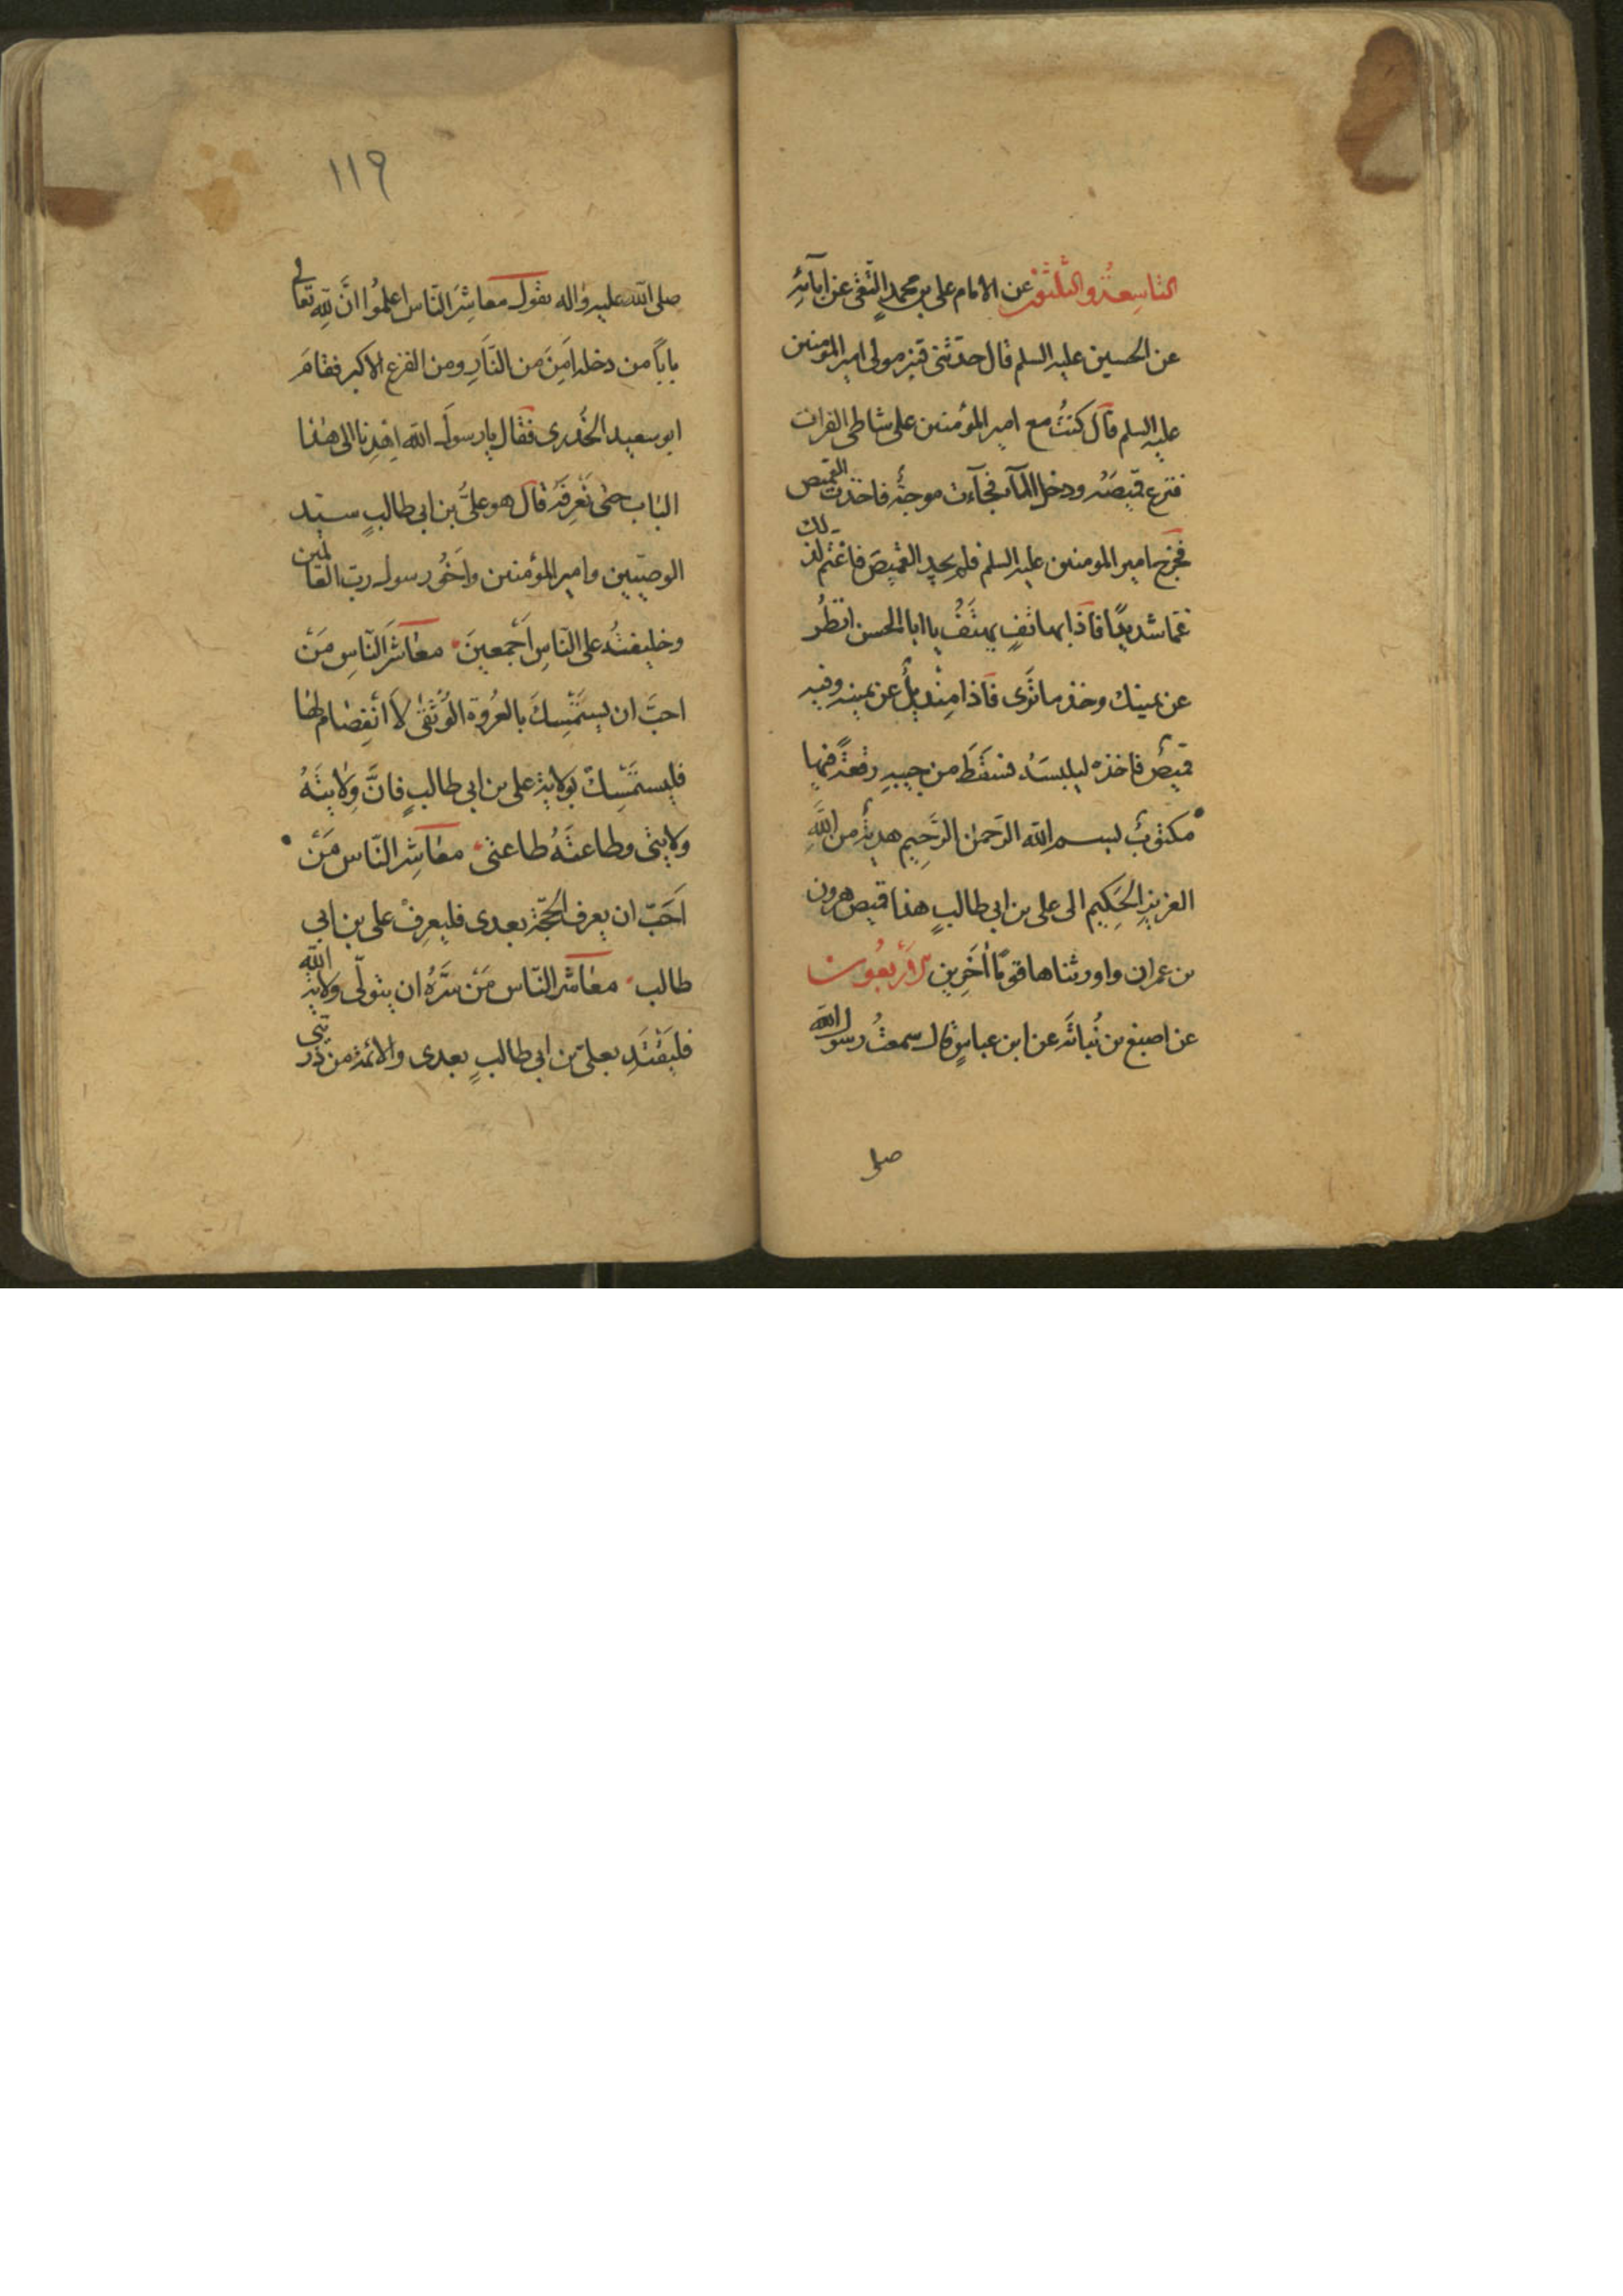 التاسعة والثلثون عن الامام على بن محمد التقى عن اٰبآئه
عن الحسين عليه السلم قال حدّثنى قنبر مولى امير المؤمنين
عليه السلم قال كنتُ مع امير المؤمنين على شاطى الفرات
فنزع قميصَه ودخل المآء فجآءت موجةٌ فاخذت القميص
فخرج امير المومنين عليه السلم فلم يجد القميصَ فاغتم لذلك
غمّا شديدًا فاذا بهاتفٍ يهتفُ يا ابا الحسن انظُر
عن يمينك وخذ ما تَرى فاذا مِنْديلٌ عن يمينه وفيه
قميصٌ فاخذه ليلبسَهُ فسَقَطَ من جيبهِ رقعةٌ فيها
مكتوبٌ بسم الله الرّحمٰن الرّحيم هديةٌ من اللّهِ
العزيزِ الحَكيم الى على بن ابى طالبٍ هذا قميص هرون
بن عمران واورثناها قومًا اٰخَرين الاَرْبعُون
عن اصبغ بن نُباتَه عن ابن عباسٍ قال سمعتُ رسول الله
صلى
١١٩
صلى الله عليه واٰله يقول معاشِرَ النّاس اعلمُوا انَّ للّه تعالى
باباً من دخله اَمِنَ من النّارِ ومن الفزعِ الاكبر فقامَ
ابو سعيد الخُدرى فقال يا رسولَ الله اهْدِنا الى هٰذا
الباب حتى نَعرِفَهُ قال هو علىُّ بن ابى طالبٍ سيّد
الوصيّين وامير المؤمنين واَخُو رسول ربّ العالمين
وخليفتُه على النّاسِ اَجْمعينَ معٰاشرَ النّاسِ مَنْ
احبَّ ان يستَمْسِكَ بالعُروَة الوُثقىٰ لاَ انْفِصٰام لهٰا
فليستَمْسِكْ بوَلاية على بن ابى طالبٍ فانَّ وِلايتَهُ
ولايتى وطاعتَهُ طاعتى معٰاشِر النّاس مَنْ
اَحَبّ ان يعرف الحُجّة بعدى فليعرِفْ على بن ابى
طالب معٰاشر النّاس مَنْ سَرَّهُ ان يتولّى ولاية الله
فليَقْتَدِ بعلىّ بن ابى طالبٍ بعدى والائمة من ذرّيتى